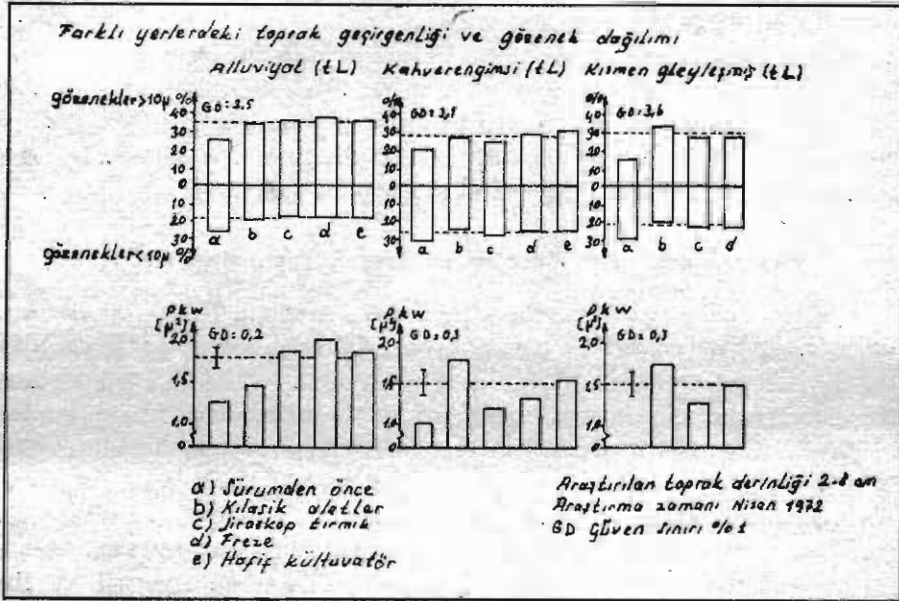 Farklı yerlerdeki toprak geçirgenliği ve gözenek dağılımı
Alluviyal (tL) Kahverengimsi (tL) Kısmen gleyleşmiş (tL)
gözenekler>10µ %
40
30
20
10
0
10
20
30
gözenekler<10µ %
GD=3.5
a b c d e
%
40
30
20
10
0
10
20
30
a b c d e
%
40
30
20
10
0
10
20
30
GD=3,6
a b c d
pkw
[µ²]
2,0
1,5
1,0
0
GD=0,2
pkw
[µ²]
2,0
1,5
1,0
0
GD=0,3
pkw
[µ²]
2,0
1,5
1,0
0
GD=0,3
a) Sürümden önce
b) Kılasik aletlar
c) Jiroskop tırmık
d) Freze
e) Hafif kültüvatör
Araştırılan toprak derinliği 2-8 cm
Araştırma zamanı Nisan 1972
GD Güven sınırı %1